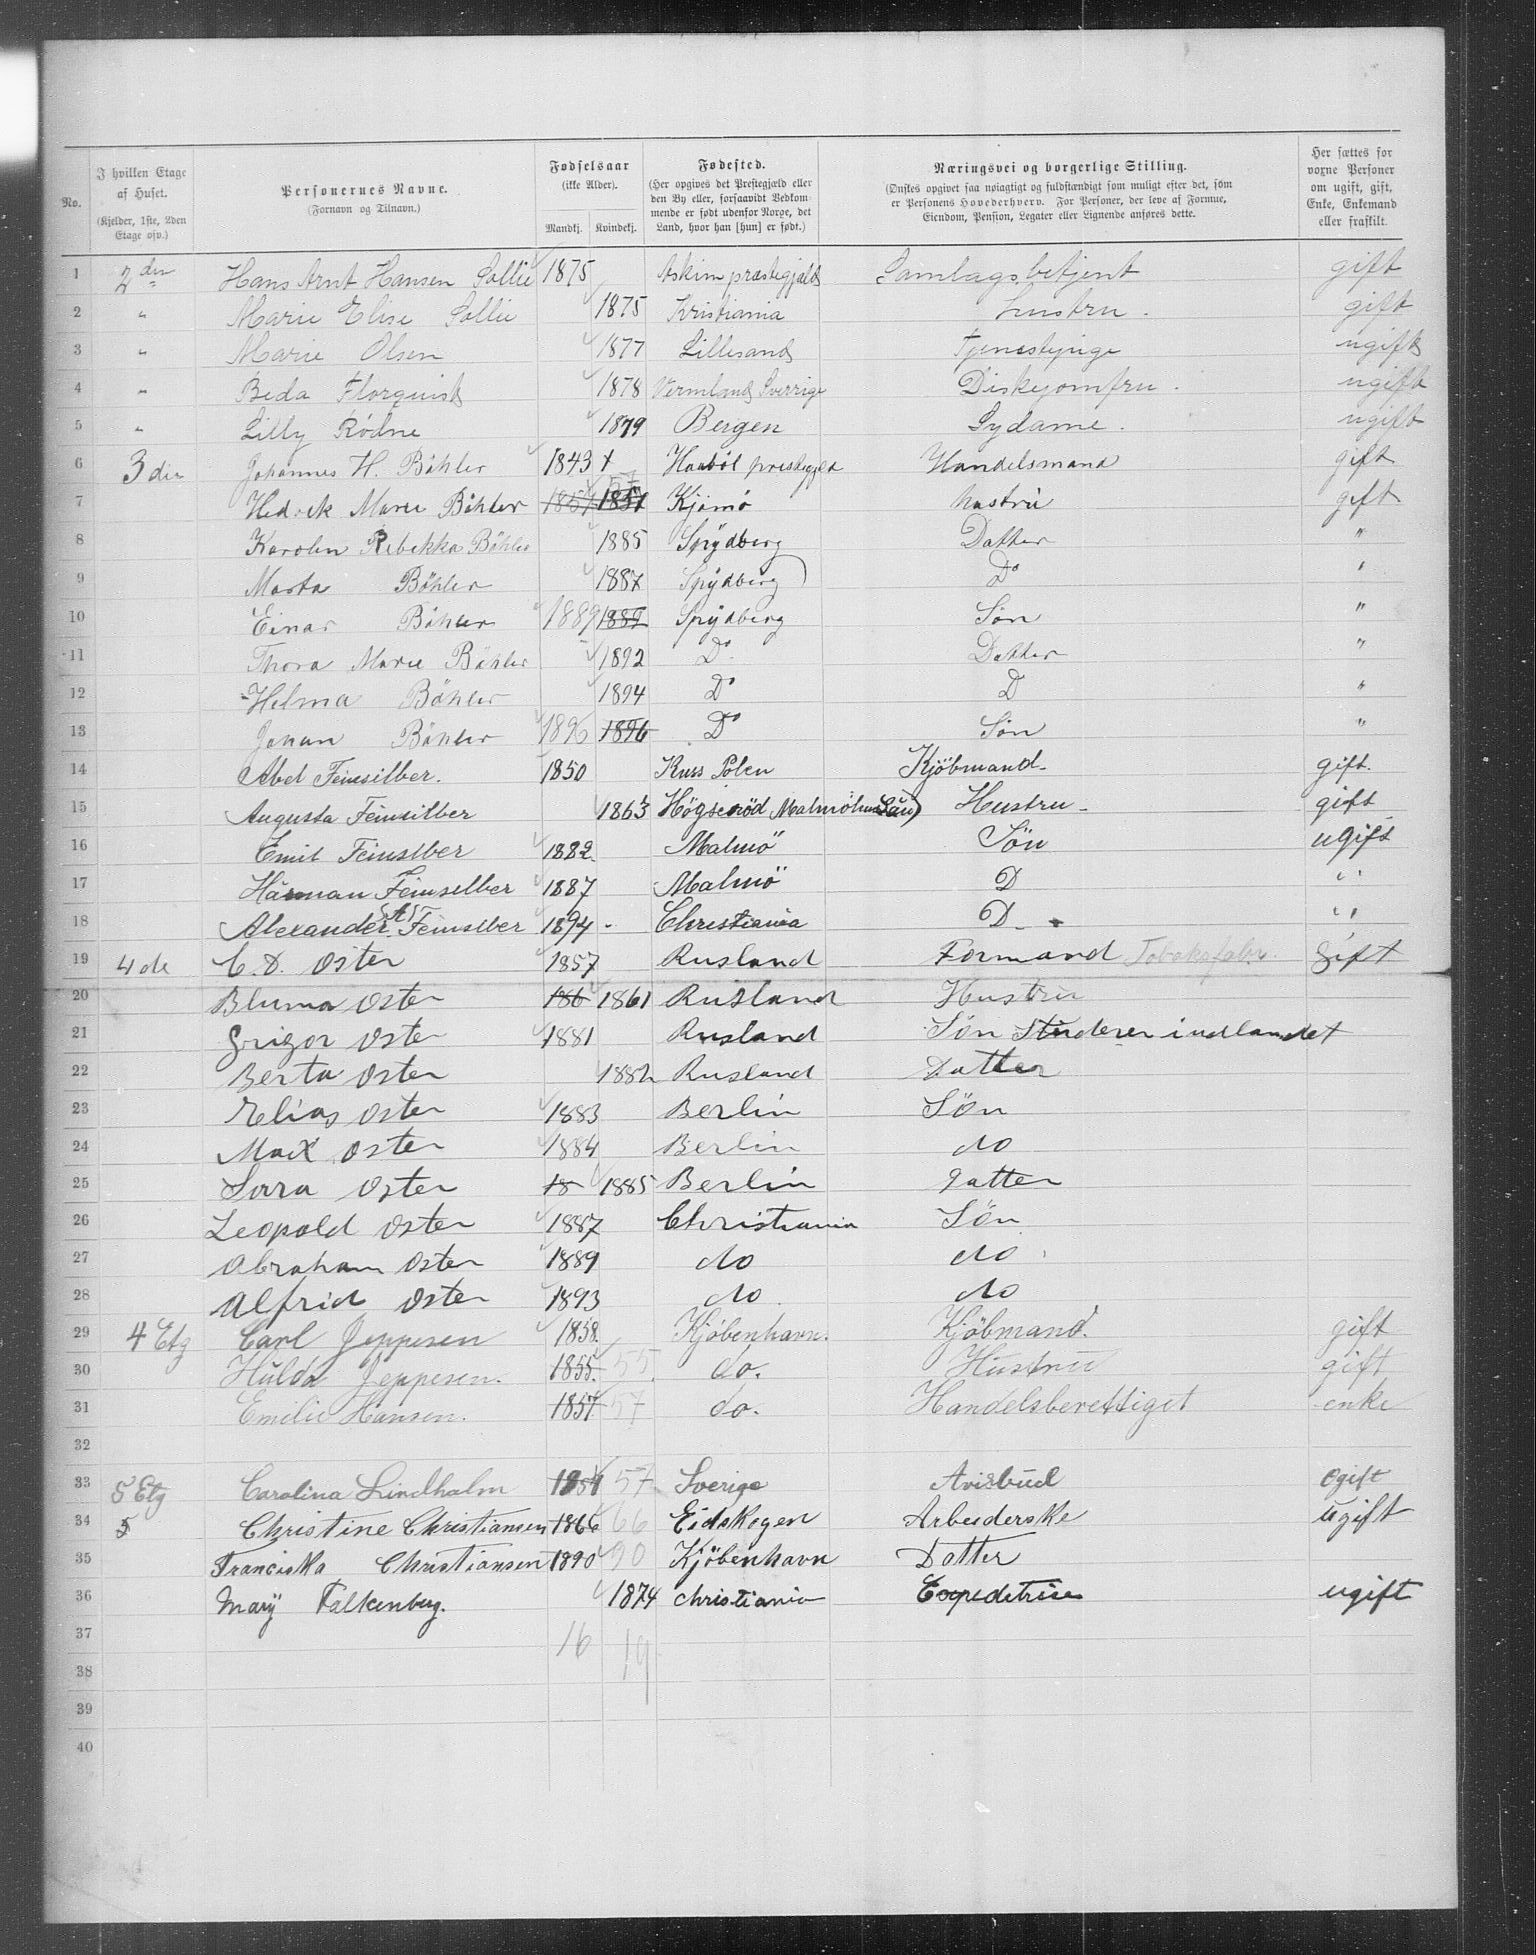 No. I hvilken Etage af Huset. (Kjelder, 1ste, 2den Etage osv.) Personernes Navne. (Fornavn og Tilnavn.) Fødselsaar (ikke Alder). Mandkj. Kvindekj. Fødested. (Her opgives det Prestegjæld eller den By eller, forsaavidt Vedkommende er født udenfor Norge, det Land, hvor han [hun] er født.) Næringsvei og borgerlige Stilling. (Ønskes opgivet saa nøiagtigt og fuldstændigt som muligt efter det, som er Personens Hovederhverv. For Personer, der leve af Formue, Eiendom, Pension, Legater eller Lignende anføres dette. Her sættes for voxne Personer om ugift, gift, Enke, Enkemand eller fraskilt.
1 2den Hans Arnt Hansen Sollie 1875 Askim præstegjæld Samlagsbetjent gift
2 " Marie Elise Sollie 1875 Kristiania Hustru. gift
3 " Marie Olsen 1877 Lillesand Tjenestepige ugift
4 " Beda Florquist 1878 Vermland Sverrige Diskejomfru. ugift
5 " Lilly Rödne 1879 Bergen Sydame. ugift
6 3die Johannes H. Böhler 1843 Haaböl prestegjeld Handelsmand gift
7 Marie Böhler 1857 1851 57 Kjømø hustru gift
8 Karolin Rebekka Böhler 1885 Spydberg Datter "
9 Marta Böhler 1887 Spydberg Do "
10 Einar Böhler 1889 1889 Spydberg Søn "
11 Thora Marie Böhler 1892 Do Datter "
12 Helma Böhler 1894 Do D "
13 Johan Böhler 1896 1896 Do Søn "
14 Abel Feinsilber. 1850 Russ Polen Kjöbmand. gift.
15 Augusta Feinsilber 1863 Malmöhus Län) Hustru gift
16 Emil Feinsilber 1882. Malmö Sön ugift
17 Härman Feinsilber 1887 Malmö D "
18 Alexander (A) Feinsilber 1894 Christiania D "
19 4de C. D. Oster 1857 Rusland Formand Tobaksfabr. Gift
20 Bluma Oster 186 1861 Rusland Hustru
21 Grigor Oster 1881 Rusland Sön Studerer i udlandet
22 Berta Oster 1882 Rusland Datter
23 Elias Oster 1883 Berlin Sön
24 Max Oster 1884 Berlin do
25 Sara Oster 18 1885 Berlin Datter
26 Leopold Oster 1887 Christiania Sön
27 Abraham Oster 1889 do do
28 Alfrid Oster 1893 do do
29 4 Etg Carl Jeppesen 1858. Kjöbenhavn. Kjöbmand. gift
30 Hulda Jeppesen. 1855. 55. do. Hustru gift
31 Emilie Hansen. 1857 57 do. Handelsberettiget enke
32
33 5 Etg Carolina Lindholm 57 Sverige Avisbud Ogift
34 5 Christine Christiansen 1866 66 Eidskogen Arbeiderske ugift
35 Franciska Christiansen 1890 90 Kjöbenhavn Datter
36 Mary Falkenberg. 1874 christiania Expeditrise ugift
37 16 19
38
39
40